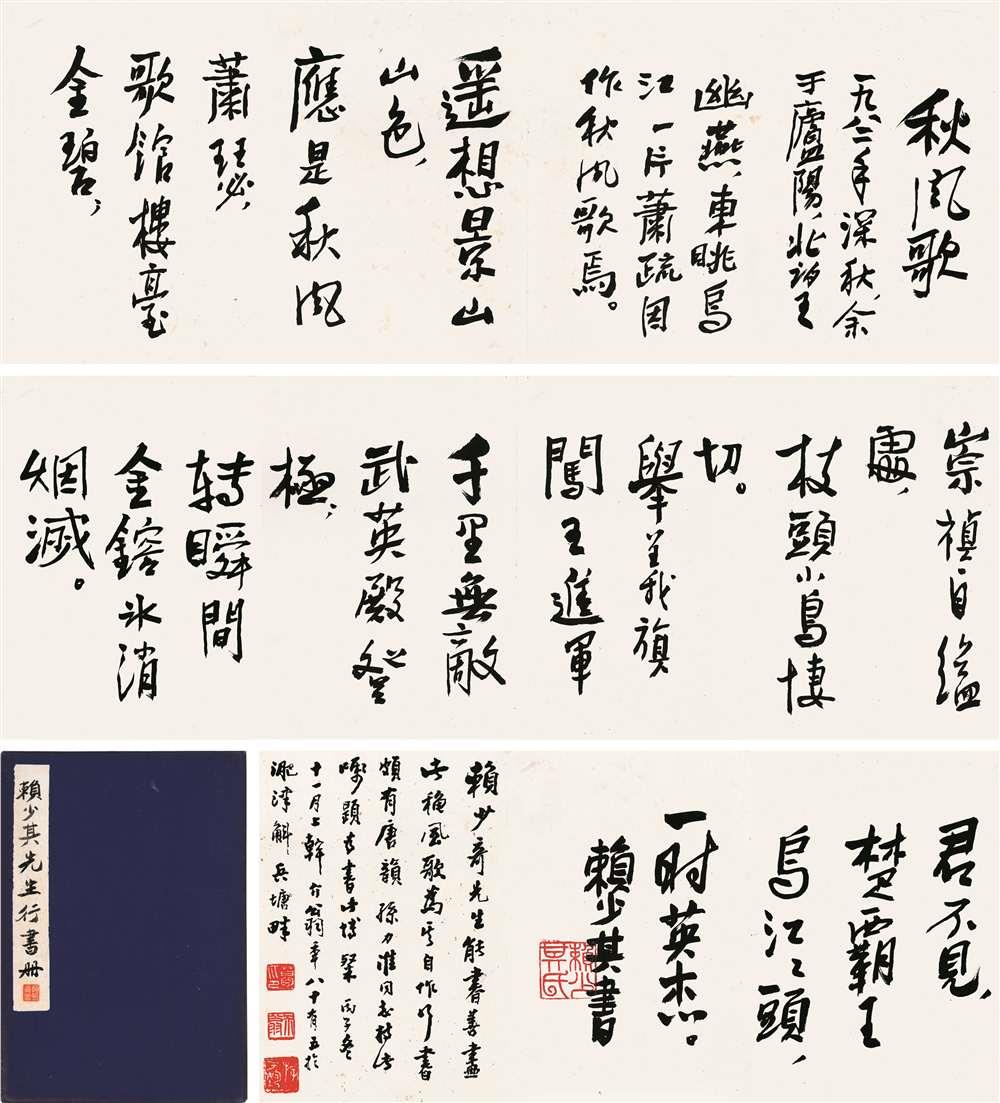 秋风歌
一九八二年深秋，余
于廬陽，北望
幽燕，東眺烏
江一片蕭疏因
作秋风歌焉。
遥想景山
山色，
應是秋风
蕭瑟，
歌馆樓臺
金碧，
崇禎自缢
處，
枝頭小鳥悽
切。
舉義旗
闖王進軍
千里無敵
武英殿登
極，
转瞬間
金鎔冰消
烟滅。
君不見，
楚覇王
烏江江頭，
一时英杰。
賴少其書
賴少奇先生能書善畫
此秋風歌為其自作所書
頗有唐韻孫力準同志持此
囑題 書此博粲丙子冬
十一月上幹 翁年八十有五於
淝津斛兵塘畔
賴少其先生行書册